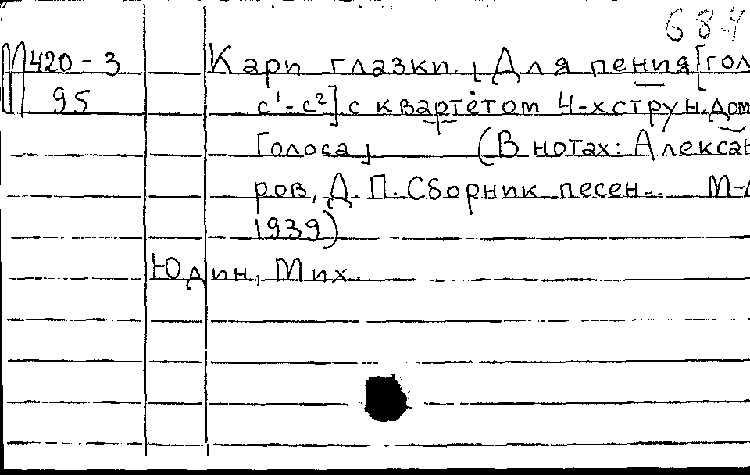 684
М420-3 Кари глазки. Для пения [гол
95 с¹-с²] с квартетом 4-хструн. дом
Голоса, (В нотах: Алексан
ров, Д. П. Сборник песен.. М-Л
1939)
Юдин, Мих.